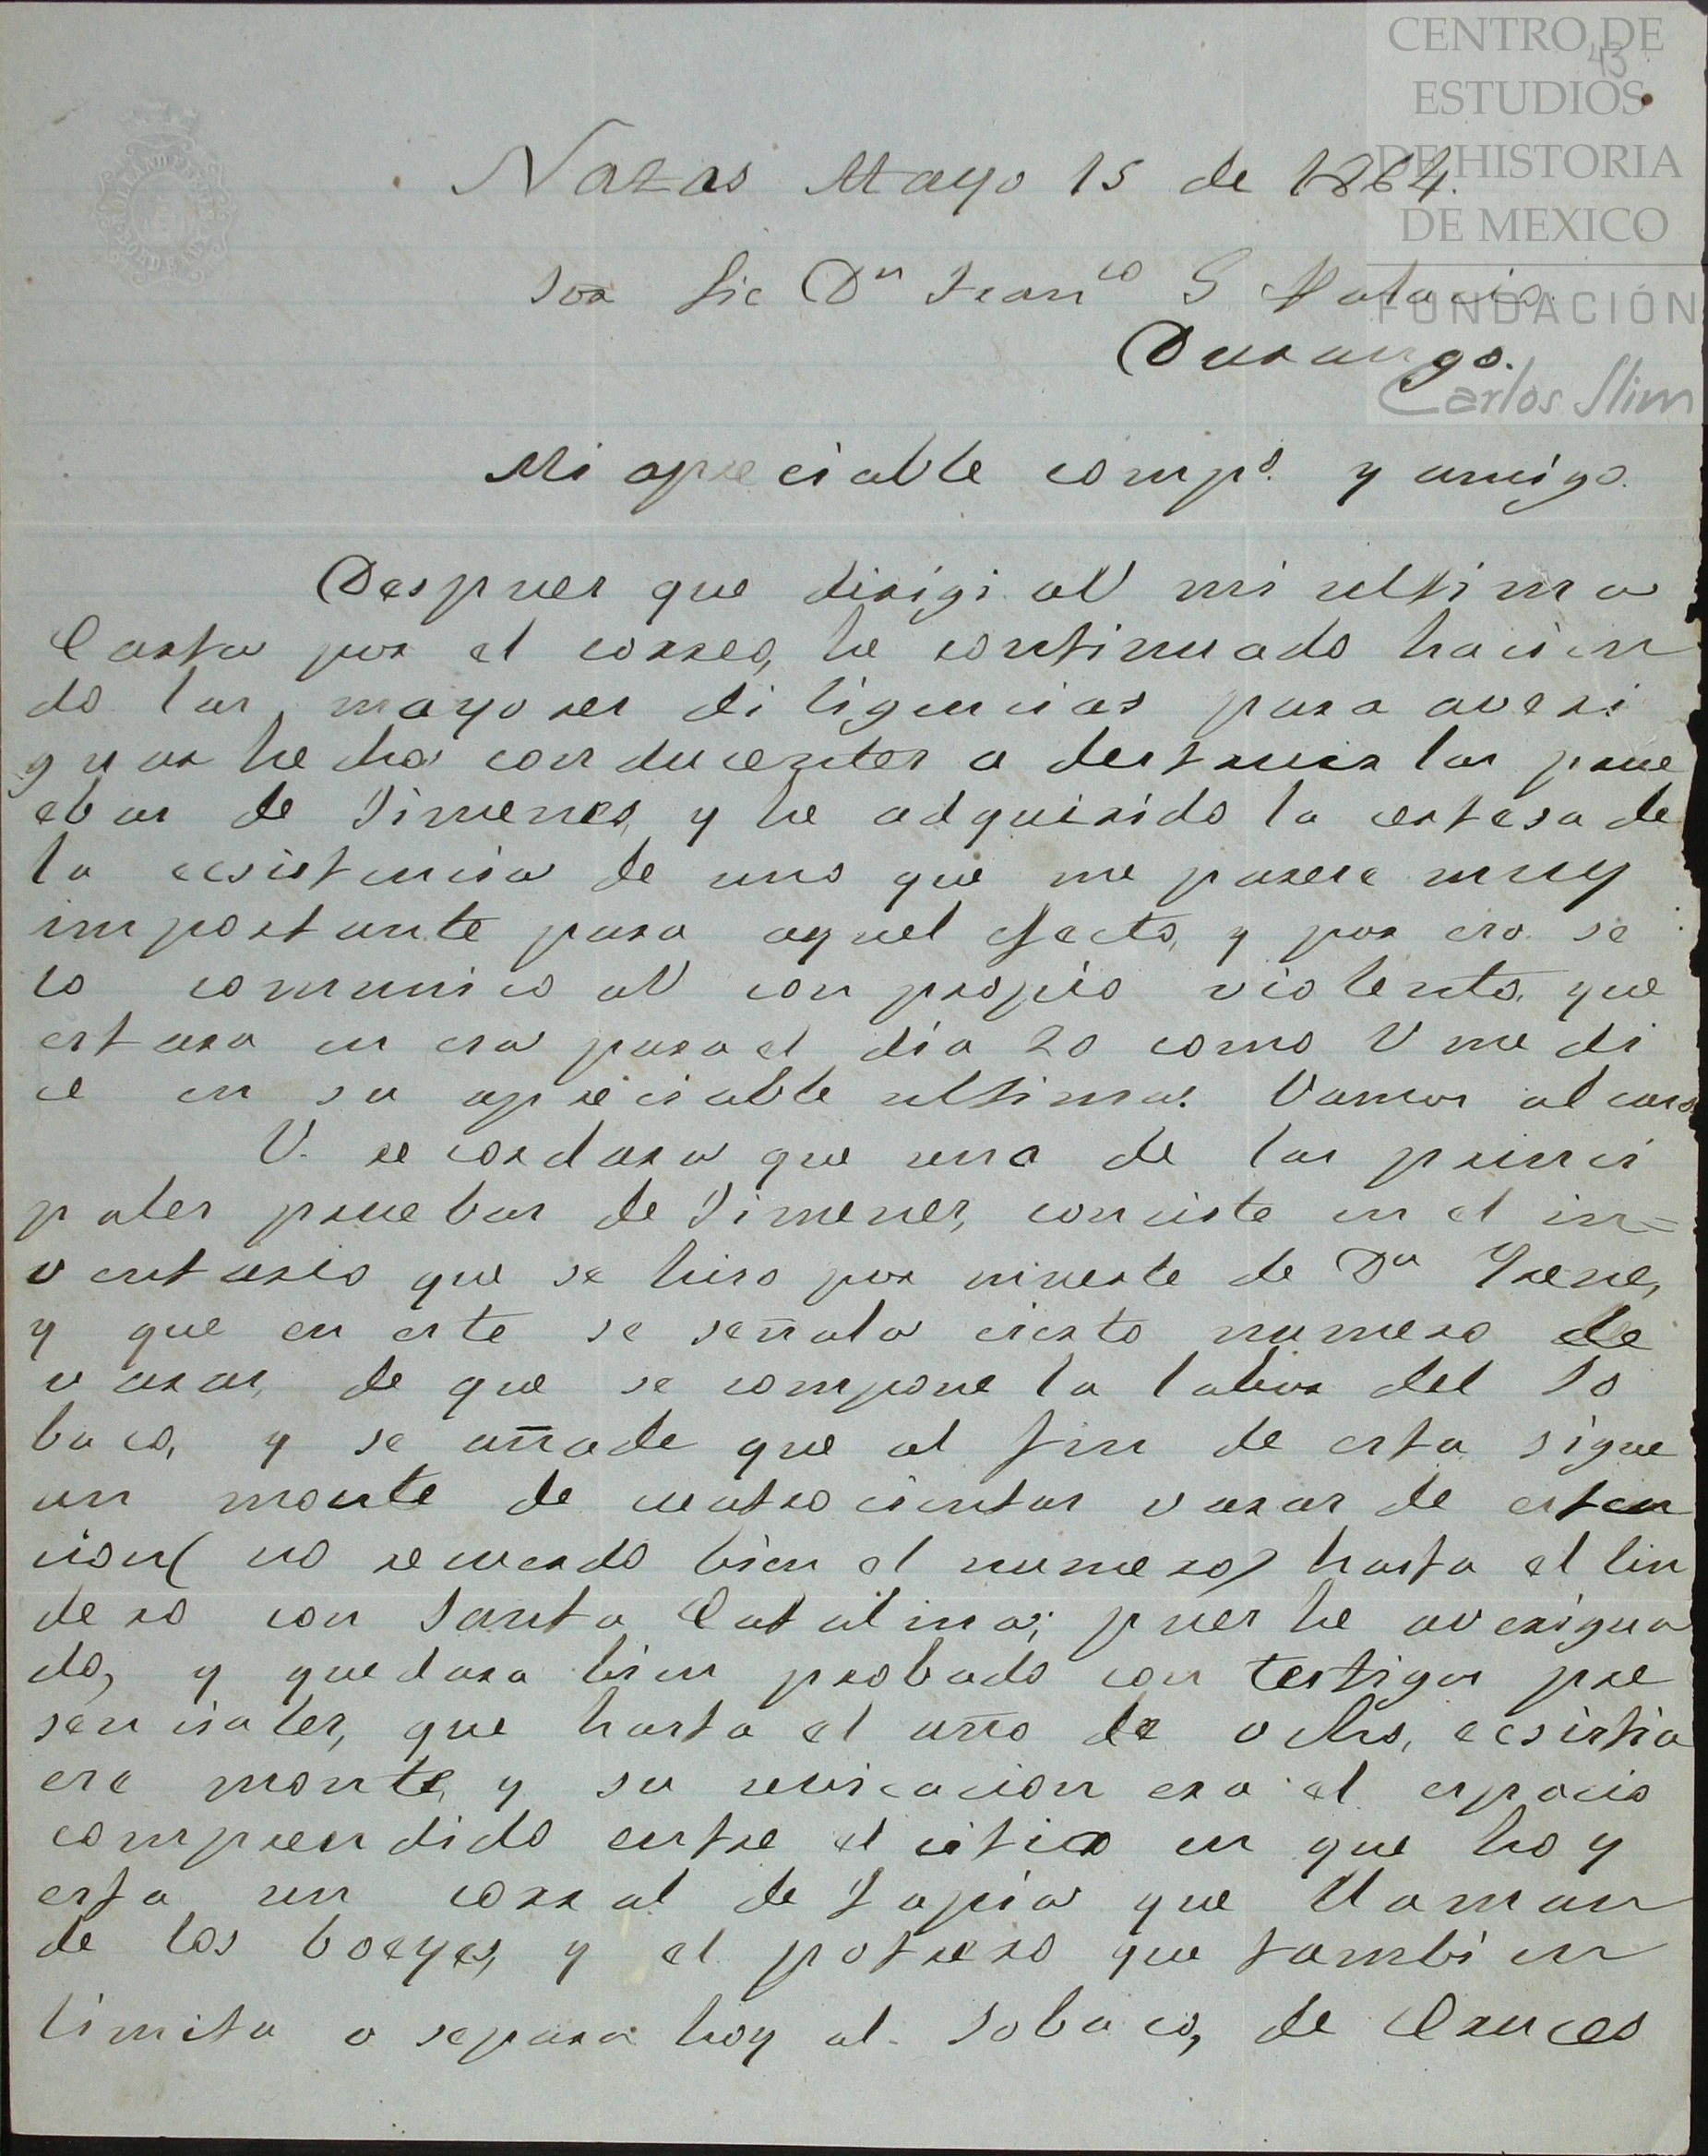 CENTRO DE
ESTUDIOS
DE HISTORIA
DE MEXICO
FUNDACIÓN
Carlos Slim
43
Nazas Mayo 15 de 1864.
Sor Lic Dn Franco G Palacio.
Durango.
Mi apreciable compo. y amigo.
Despues que dirigi aV mi ultima
Carta por el correo, he continuado hacien
do las mayores diligencias para averi
guar hechos conducentes a destruir las prue
ebas de Jimenes, y he adquirido la certesa de
la ecsistencia de uno que me parece muy
importante para aquel efecto, y por eso se
lo comunico aV con propio violento, que
estara en esa para el dia 20 como V me di
ce en su apreciable ultima. Vamos al caso
V. recordara que una de las princi
pales pruebas de Jimenes, consiste en el in=
ventario que se hiso por muerte de Da Yrene,
y que en este se señala cierto numero de
varas, de que se compone la labor del So
baco, y se añade que al fin de esta sigue
un monte de cuatrocientas varas de esten
cion( no recuerdo bien el numero) hasta el lin
dero con Santa Catalina; pues he averigua
do, y quedara bien probado con testigos pre
senciales, que hasta el año de ocho, ecsistia
ese monte, y su uvicacion era el espacio
comprendido entre el citio en que hoy
esta un corral de tapia que llaman
de los boeyes, y el potrero que tambien
limita o separa hoy al Sobaco, de Cruces